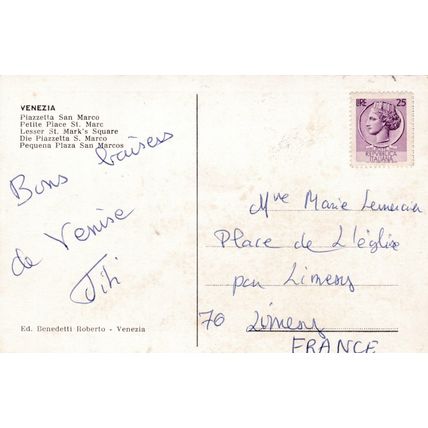 VENEZIA
Piazzetta San Marco
Petite Place St. Marc
Lesser St. Mark's Square
Die Piazzetta S. Marco
Pequena Plaza San Marcos
Bons baisers
de Venise
Titi
Ed. Benedetti Roberto - Venezia
LIRE 25
REPVBBLICA
ITALIANA
Mme Marie Lemercier
Place de L'église
par Limesy
76 Limesy
FRANCE